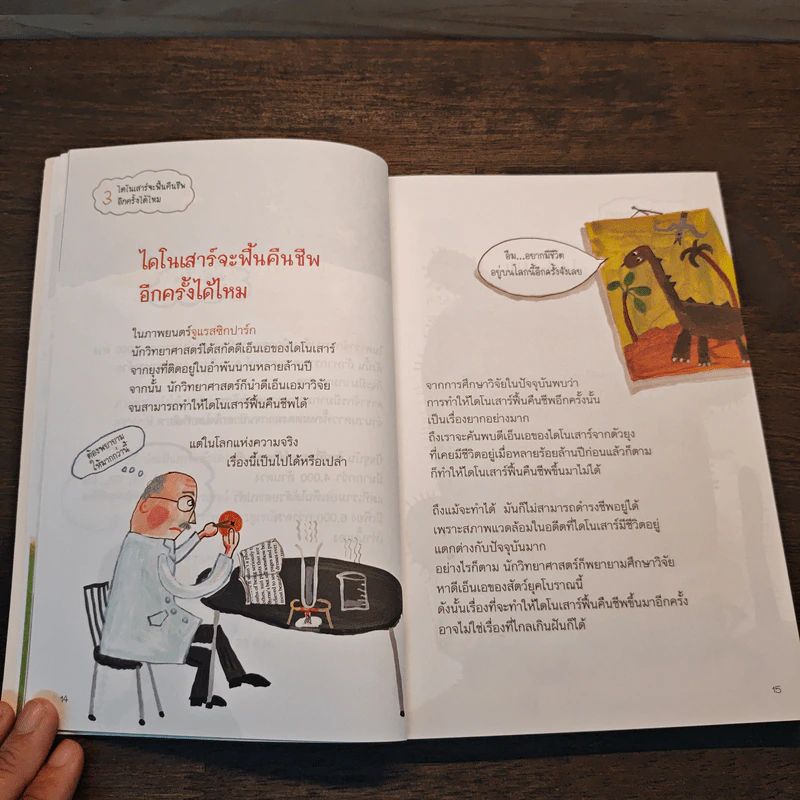 3 ไดโนเสาร์จะฟื้นคืนชีพ
อีกครั้งได้ไหม
ไดโนเสาร์จะฟื้นคืนชีพ
อีกครั้งได้ไหม
ในภาพยนตร์จูแรสซิกปาร์ก
นักวิทยาศาสตร์ได้สกัดดีเอ็นเอของไดโนเสาร์
จากยุงที่ติดอยู่ในอำพันนานหลายล้านปี
จากนั้น นักวิทยาศาสตร์ก็นำดีเอ็นเอมาวิจัย
จนสามารถทำให้ไดโนเสาร์ฟื้นคืนชีพได้
แต่ในโลกแห่งความจริง
เรื่องนี้เป็นไปได้หรือเปล่า
ต้องพยายาม
ให้มากกว่านี้
14
อืม...อยากมีชีวิต
อยู่บนโลกนี้อีกครั้งจังเลย
จากการศึกษาวิจัยในปัจจุบันพบว่า
การทำให้ไดโนเสาร์ฟื้นคืนชีพอีกครั้งนั้น
เป็นเรื่องยากอย่างมาก
ถึงเราจะค้นพบดีเอ็นเอของไดโนเสาร์จากตัวยุง
ที่เคยมีชีวิตอยู่เมื่อหลายร้อยล้านปีก่อนแล้วก็ตาม
ก็ทำให้ไดโนเสาร์ฟื้นคืนชีพขึ้นมาไม่ได้
ถึงแม้จะทำได้ มันก็ไม่สามารถดำรงชีพอยู่ได้
เพราะสภาพแวดล้อมในอดีตที่ไดโนเสาร์มีชีวิตอยู่
แตกต่างกับปัจจุบันมาก
อย่างไรก็ตาม นักวิทยาศาสตร์ก็พยายามศึกษาวิจัย
หาดีเอ็นเอของสัตว์ยุคโบราณนี้
ดังนั้นเรื่องที่จะทำให้ไดโนเสาร์ฟื้นคืนชีพขึ้นมาอีกครั้ง
อาจไม่ใช่เรื่องที่ไกลเกินฝันก็ได้
15